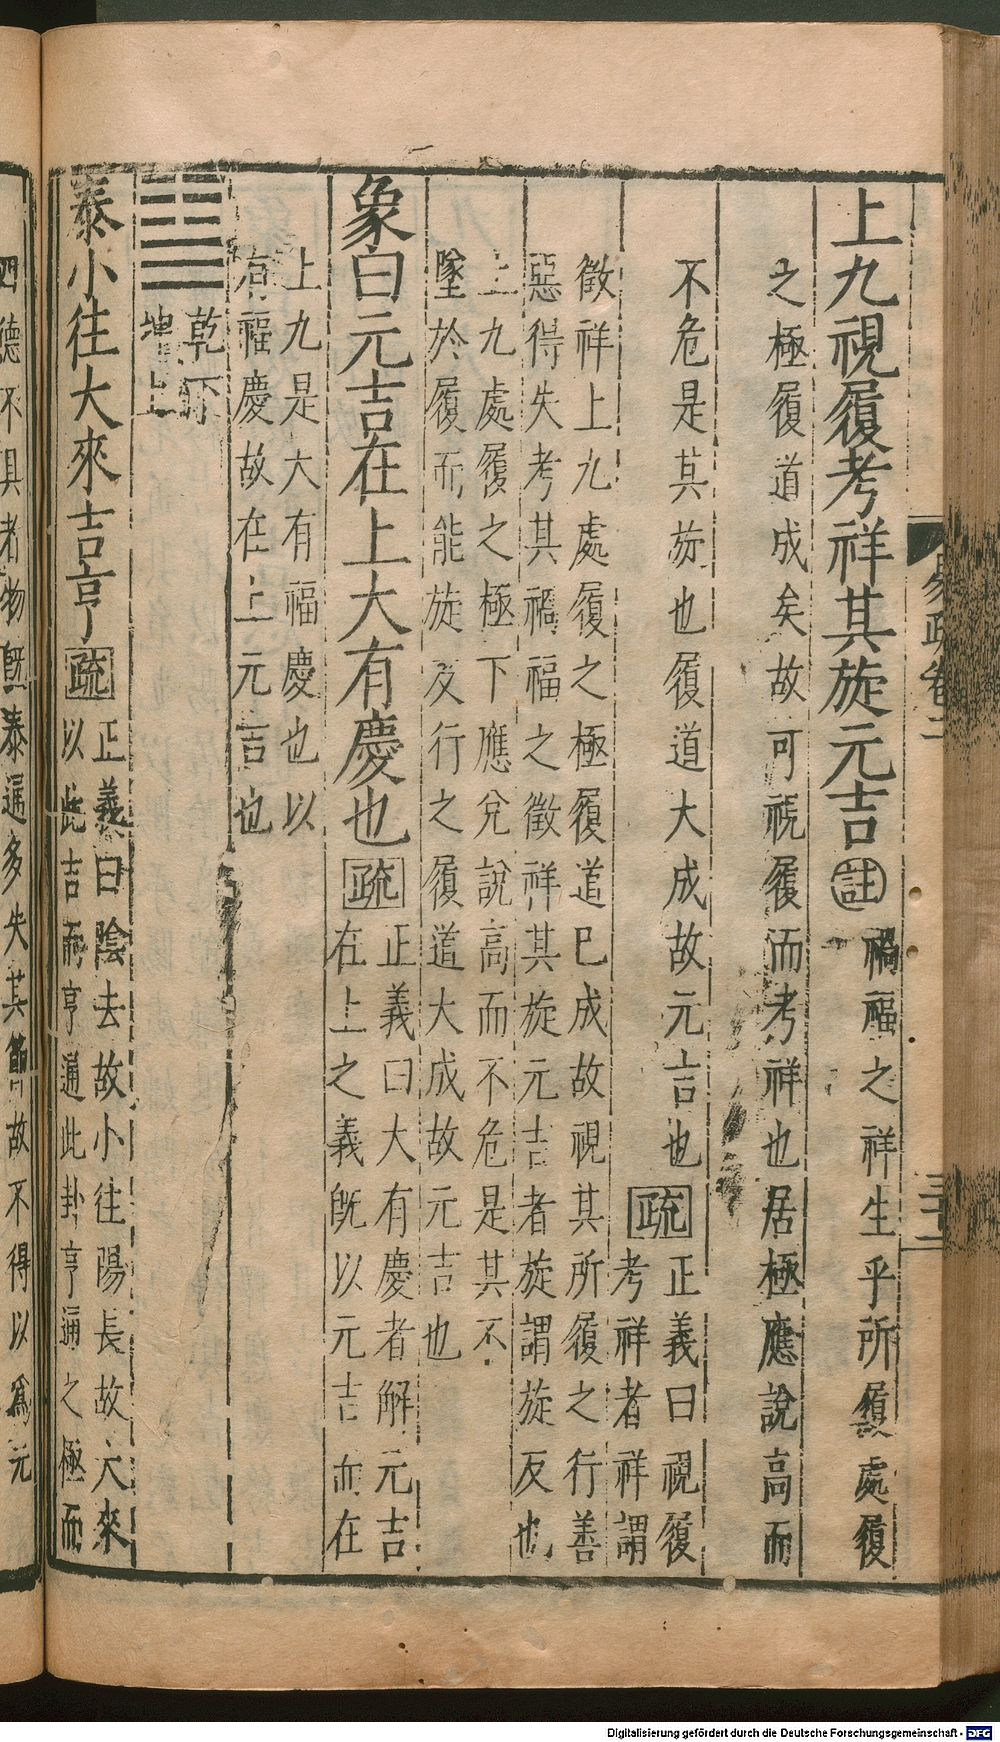 易疏卷二
三十二
上九視履考祥其旋元吉 註 禍福之祥生乎所履處履
之極履道成矣故可視履而考祥也居極應說高而
不危是其旋也履道大成故元吉也 疏 正義曰視履
考祥者祥謂
徵祥上九處履之極履道已成故視其所履之行善
惡得失考其禍福之徵祥其旋元吉者旋謂旋反也
上九處履之極下應兌說高而不危是其不
墜於履而能旋反行之履道大成故元吉也
象曰元吉在上大有慶也 疏 正義曰大有慶者解元吉
在上之義既以元吉而在
上九是大有福慶也以
有福慶故在上元吉也
乾下
坤上
泰小往大來吉亨 疏 正義曰陰去故小往陽長故大來
以此吉而亨通此卦亨通之極而
四德不具者物既泰通多失其節故不得以為元
Digitalisierung gefördert durch die Deutsche Forschungsgemeinschaft - DFG